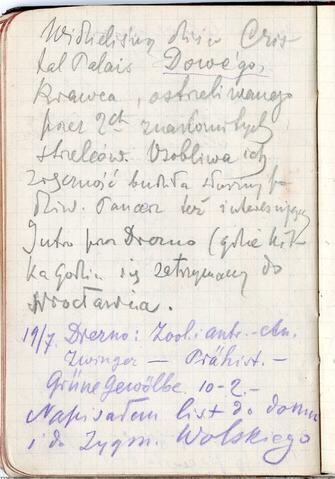 Widzieliśmy dziś w Cris-
tal Palais Dowe'go,
krawca, ostreliwanego
przez 2ch znakomitych
strelców. Osobliwa ich
zręczność budziła słuszny po-
dziw. Pancerz też interesujący
Jutro przez Drezno (gdzie kil-
ka godzin się zatrzymamy do
Wrocławia.
19/7. Drezno: Zool. antr.-etn.
Zwinger — Prähist. —
Grüne Gewölbe 10-2.-
Napisałem list do domu
i do Zygm. Wolskiego